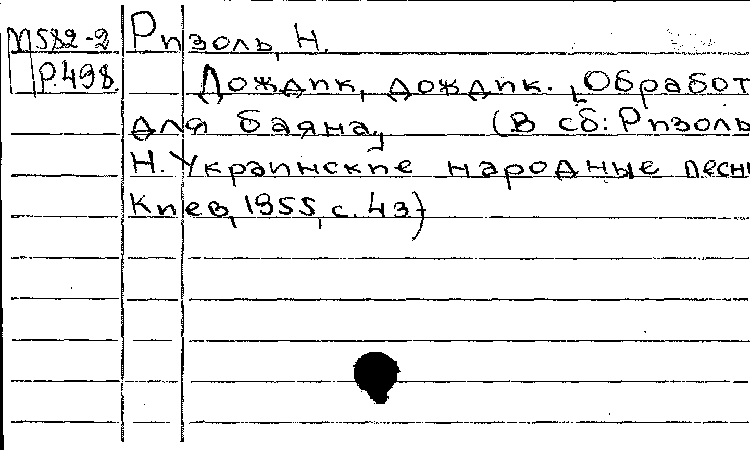 М582-2 Ризоль, Н.
Р.498 Дождик, дождик. [Обработ
для баяна,] (В сб: Ризоль
Н. Украинские народные песни
Киев, 1955, с. 43)